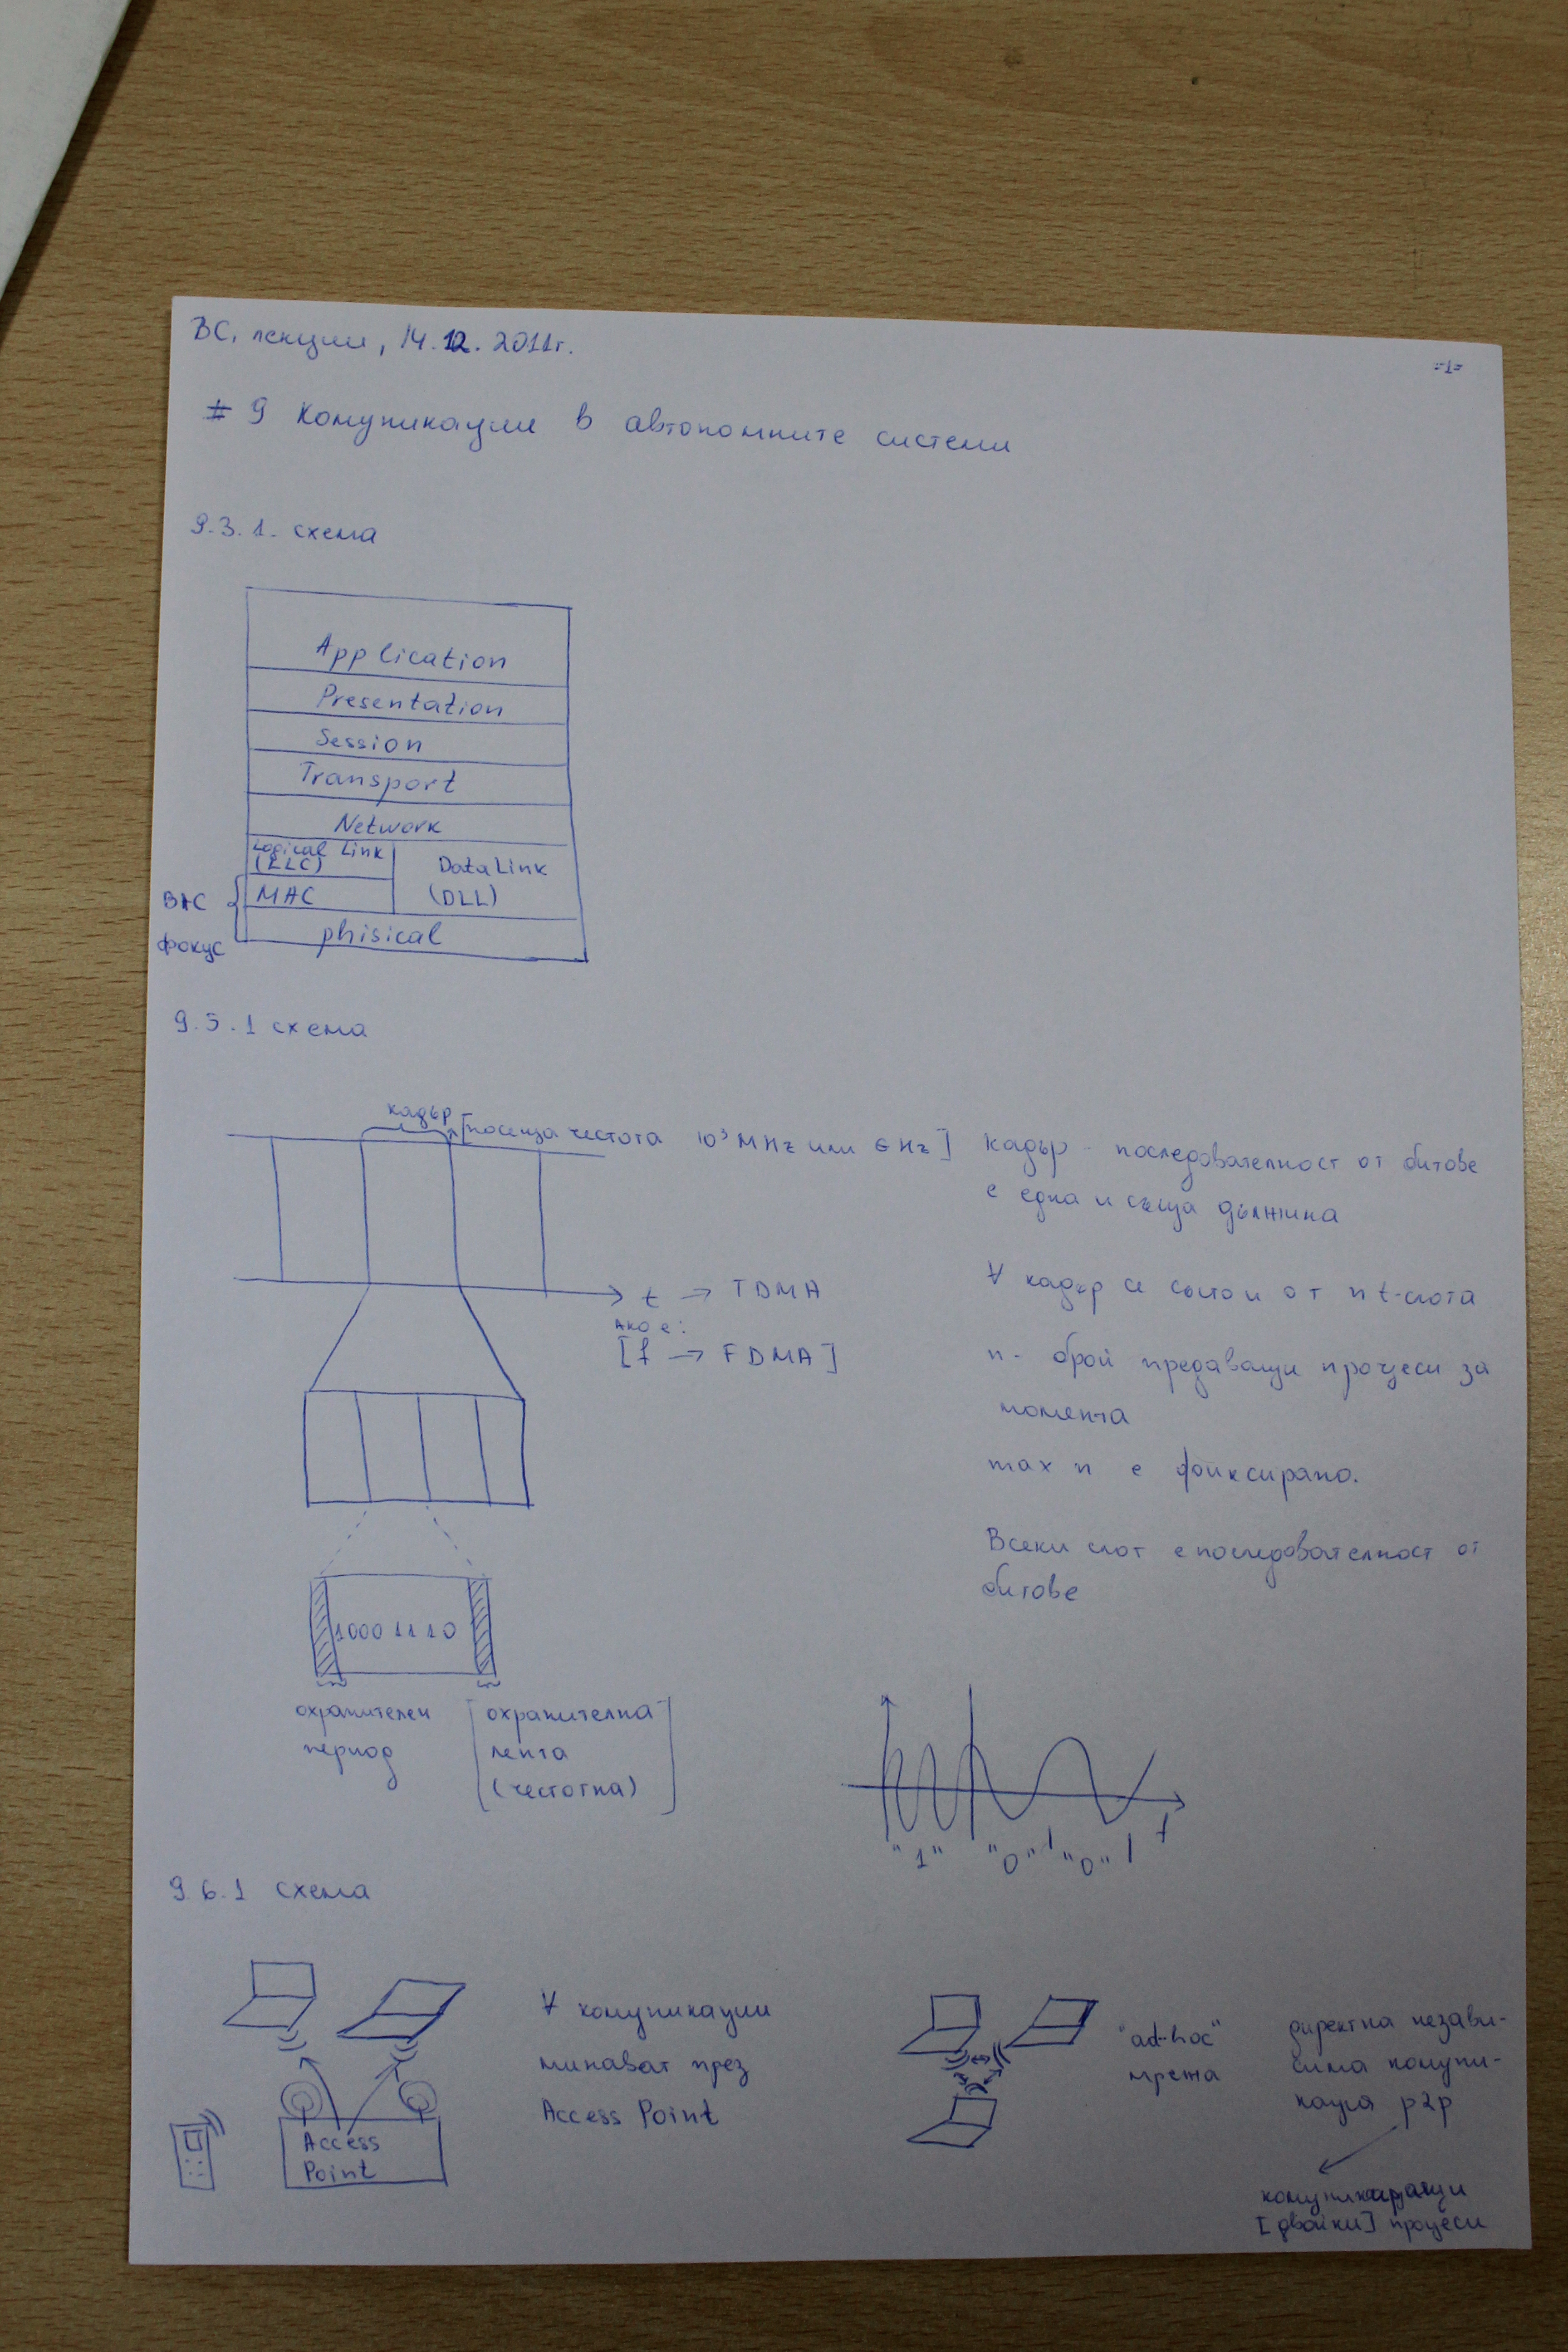 ВС, лекции, 14.12.2011г.
-1-
# 9 Комуникации в автономните системи
9.3.1. схема
Application
Presentation
Session
Transport
Network
Logical Link
(LLC)
DataLink
(DLL)
MAC
phisical
ВАС
фокус
9.5.1 схема
кадър
[носеща честота 10³ MHz или GHz]
t → TDMA
Ако е:
[f → FDMA]
кадър - последователност от битове
с една и съща дължина
∀ кадър се състои от n t-слота
n - брой предаващи процеси за
момента
max n е фиксирано.
Всеки слот е последователност от
битове
10001110
охранителен
период
[охранителна
лента
(честотна)]
"1" "0" "0" t
9.6.1 схема
∀ комуникации
минават през
Access Point
Access
Point
"ad-hoc"
мрежа
директна незави-
сима комуни-
кация p2p
комуникиращи
[двойки] процеси